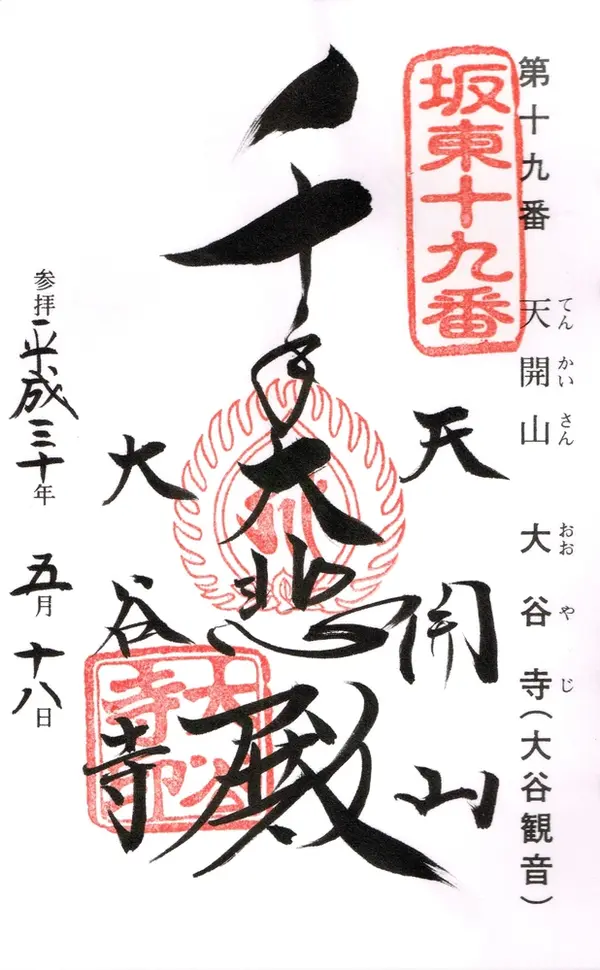 第十九番 天開山 大谷寺(大谷観音)
てんかいさん おおやじ
坂東十九番
天開山
千手大悲殿
大谷寺
大谷寺印
参拝 平成三十年 五月十八日